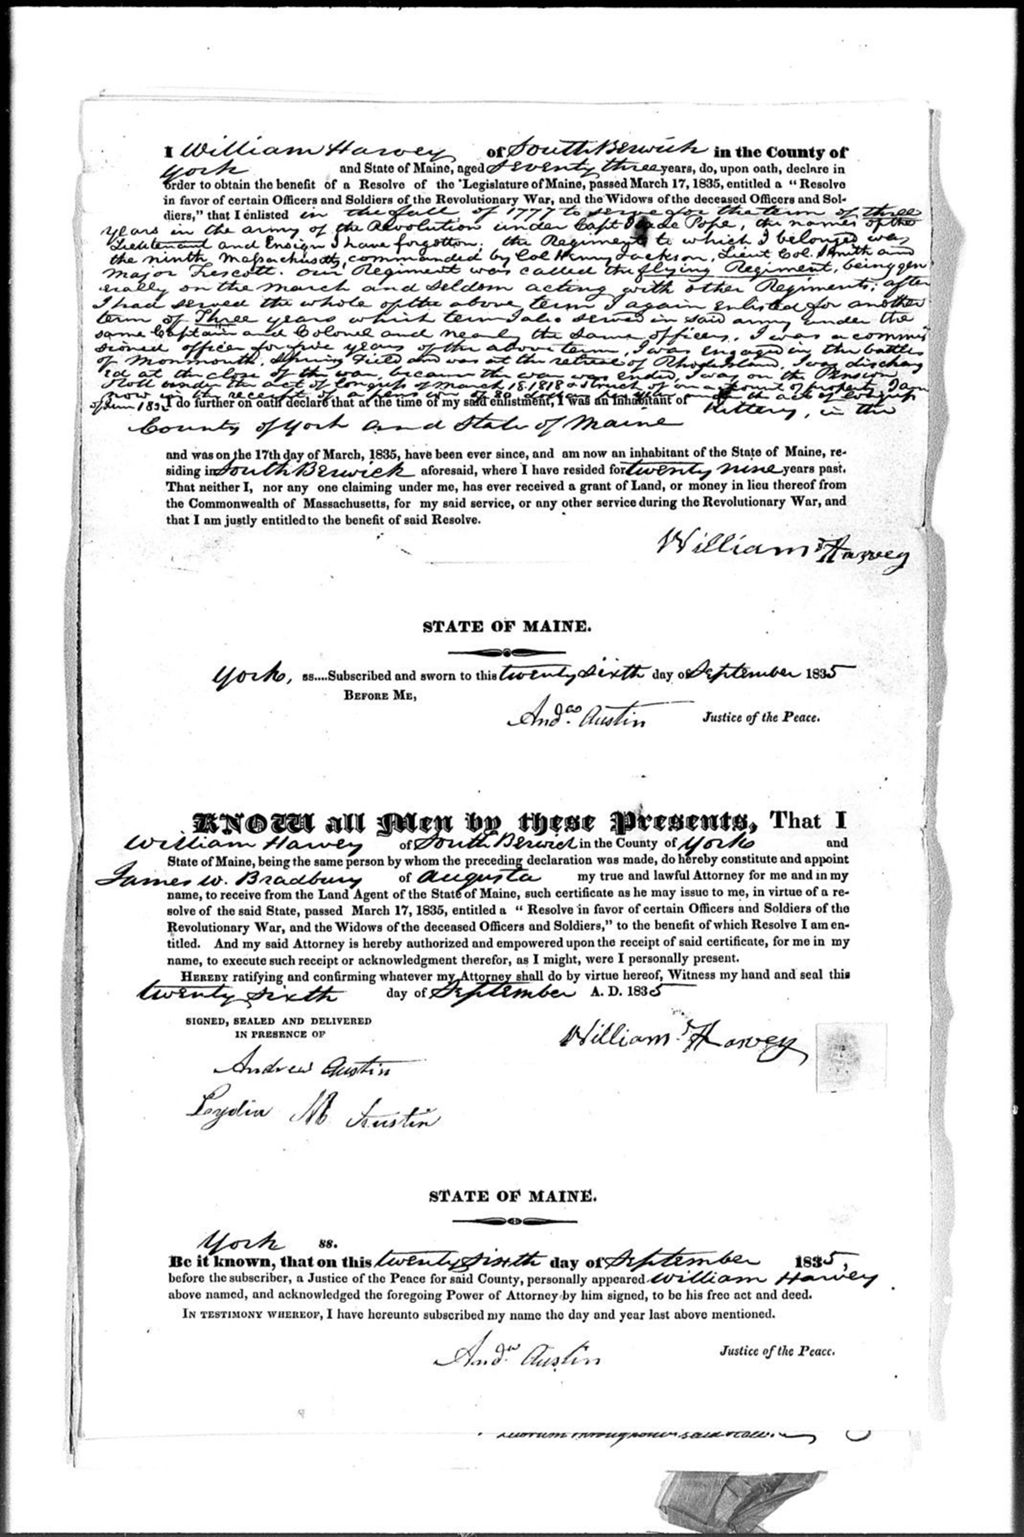 I William Harvey of South Berwick in the County of
York and State of Maine, aged seventy three years, do, upon oath, declare in
order to obtain the benefit of a Resolve of the Legislature of Maine, passed March 17, 1835, entitled a "Resolve
in favor of certain Officers and Soldiers of the Revolutionary War, and the Widows of the deceased Officers and Sol-
diers," that I enlisted in the fall of 1777 to serve for the term of three
years in the army of the Revolution under Capt Pope, the names of the
Lieutenant and Ensign I have forgotten; the Regiment to which I belonged was
the ninth Massachusetts, commanded by Col Henry Jackson, Lieut Col. Smith and
Major Trescott. our Regiment was called the flying Regiment, being gen
erally on the march and seldom acting with other Regiments; after
I had served the whole of the above term I again enlisted for another
term of Three years which term I also served in said army under the
same Captain and Colonel and nearly the same officers, I was a commis
sioned officer for five years of the above term, I was engaged in the battles
of Monmouth, Spring Field and was at the retreat of Rhode Island, I was discharg
ed at the close of the war, because the war was ended, I was on the Pension
Roll under the act of Congress of March 18. 1818 & struck of on account of property, I am
now in the receipt of a pension of 80 dollars per year under the act of Congress
of June 1832 I do further on oath declare that at the time of my said enlistment, I was an inhabitant of Kittery, in the
County of York and State of Maine
and was on the 17th day of March, 1835, have been ever since, and am now an inhabitant of the State of Maine, re-
siding in South Berwick aforesaid, where I have resided for twenty nine years past.
That neither I, nor any one claiming under me, has ever received a grant of Land, or money in lieu thereof from
the Commonwealth of Massachusetts, for my said service, or any other service during the Revolutionary War, and
that I am justly entitled to the benefit of said Resolve.
William Harvey
STATE OF MAINE.
York, ss....Subscribed and sworn to this twenty sixth day of September 1835
BEFORE ME,
And.w Austin Justice of the Peace.
KNOW all Men by these Presents, That I
William Harvey of South Berwick in the County of York and
State of Maine, being the same person by whom the preceding declaration was made, do hereby constitute and appoint
James W. Bradbury of Augusta my true and lawful Attorney for me and in my
name, to receive from the Land Agent of the State of Maine, such certificate as he may issue to me, in virtue of a re-
solve of the said State, passed March 17, 1835, entitled a "Resolve in favor of certain Officers and Soldiers of the
Revolutionary War, and the Widows of the deceased Officers and Soldiers," to the benefit of which Resolve I am en-
titled. And my said Attorney is hereby authorized and empowered upon the receipt of said certificate, for me in my
name, to execute such receipt or acknowledgment therefor, as I might, were I personally present.
HEREBY ratifying and confirming whatever my Attorney shall do by virtue hereof, Witness my hand and seal this
twenty sixth day of September A. D. 1835
SIGNED, SEALED AND DELIVERED
IN PRESENCE OF
William Harvey
Andrew Austin
Lydia M Austin
STATE OF MAINE.
York ss.
Be it known, that on this twenty sixth day of September 1835,
before the subscriber, a Justice of the Peace for said County, personally appeared William Harvey
above named, and acknowledged the foregoing Power of Attorney by him signed, to be his free act and deed.
IN TESTIMONY WHEREOF, I have hereunto subscribed my name the day and year last above mentioned.
And.w Austin Justice of the Peace.